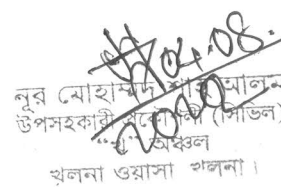 ০৪.০৮.
২০২০
নূর মোহাম্মদ শাহ আলম
উপসহকারী প্রকৌশলী (সিভিল)
অঞ্চল
খুলনা ওয়াসা খুলনা।